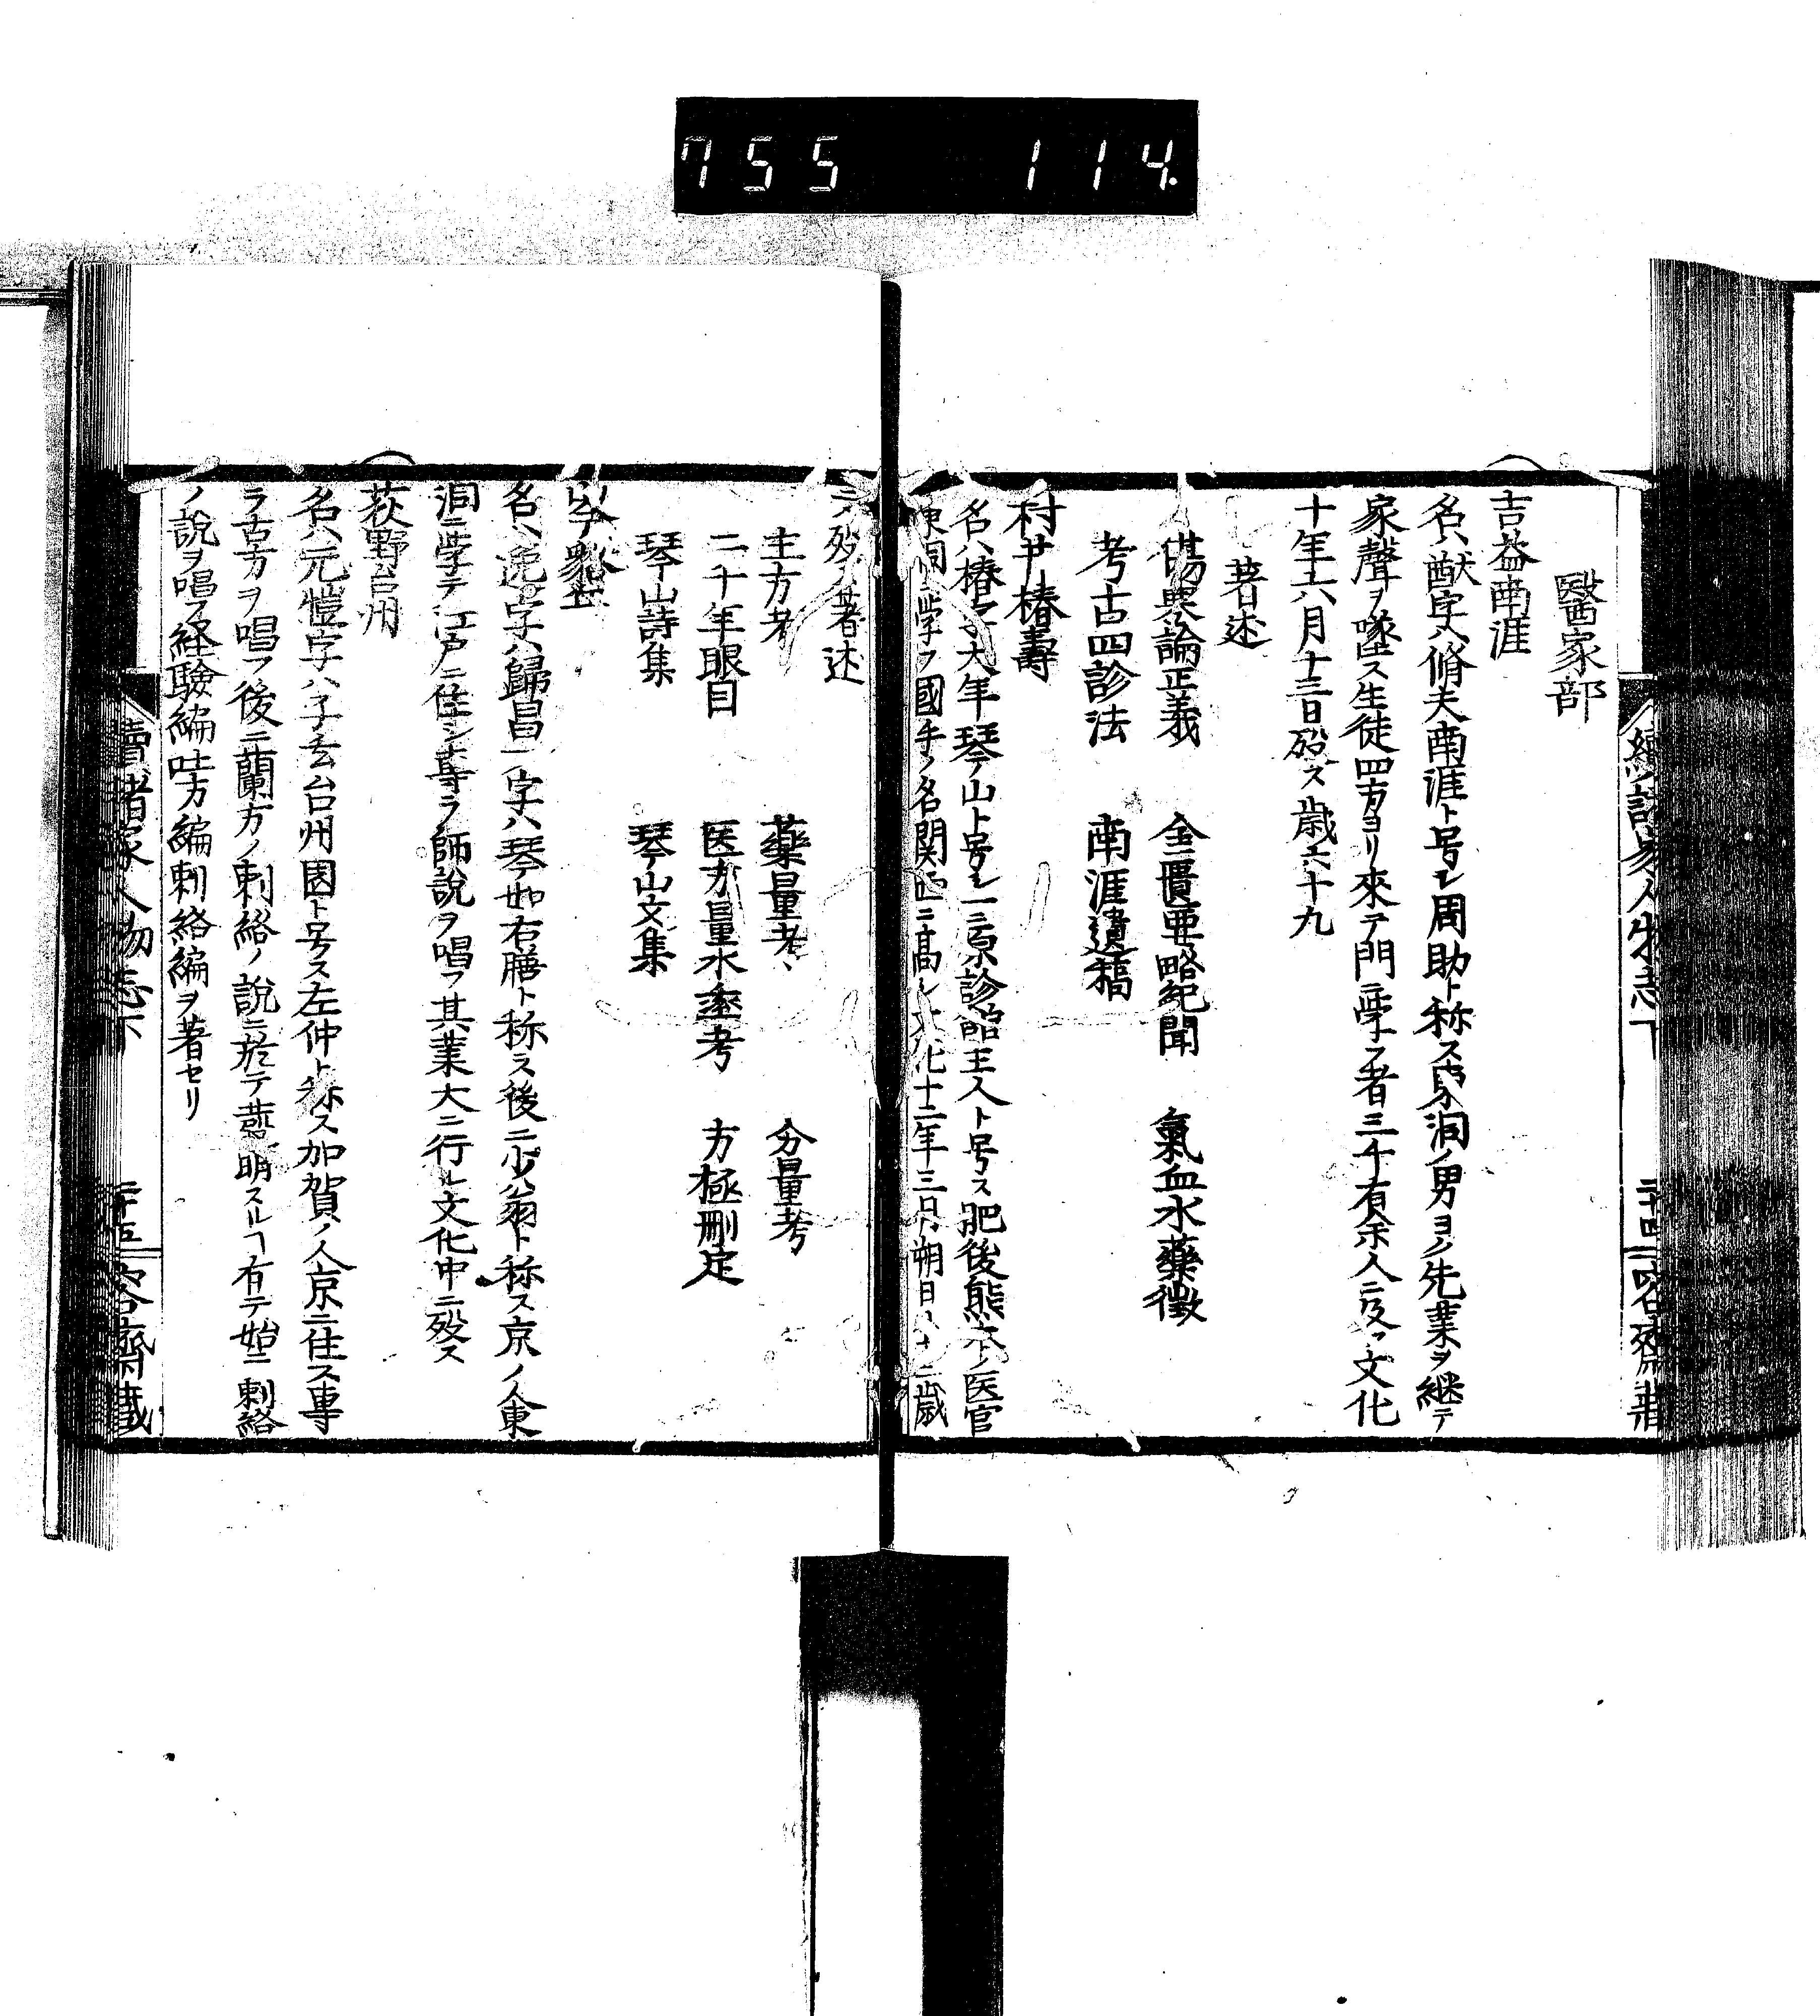 755 114.
續諸家人物志下 二十四 容齋蔵
醫家部
吉益南涯
名ハ猷字ハ脩夫南涯ト号シ周助ト称ス東洞ノ男ヨク先業ヲ継テ
家聲ヲ墜ス生徒四方ヨリ來テ門ニ学フ者三千有余人ニ及フ文化
十年六月十三日殁ス歳六十九
著述
傷寒論正義 金匱要略紀聞 氣血水藥徴
考古四診法 南涯遺稿
村井椿壽
名ハ椿字大年琴山ト号シ一ニ原診館主人ト号ス肥後熊本ノ医官
東洞ニ学フ國手ノ名関西ニ高シ文化十二年三月朔日八十二歳
ニ〆殁ス著述
主方考 藥量考 分量考
二十年眼目 医方量水率考 方極刪定
琴山詩集 琴山文集
名ハ逸字ハ歸昌一字ハ琴如右膳ト称ス後ニ少翁ト称ス京ノ人東
洞ニ学テ江戸ニ住シ専ラ師説ヲ唱フ其業大ニ行ル文化中ニ殁ス
荻野台州
名ハ元愷字ハ子玄台州園ト号ス左仲ト称ス加賀ノ人京ニ住ス専
ラ古方ヲ唱フ後ニ蘭方ノ刺絡ノ説ニ於テ發明スルヿ有テ始テ刺絡
ノ説ヲ唱フ経験編吐方編刺絡編ヲ著セリ
續諸家人物志下 二十五 容齋蔵